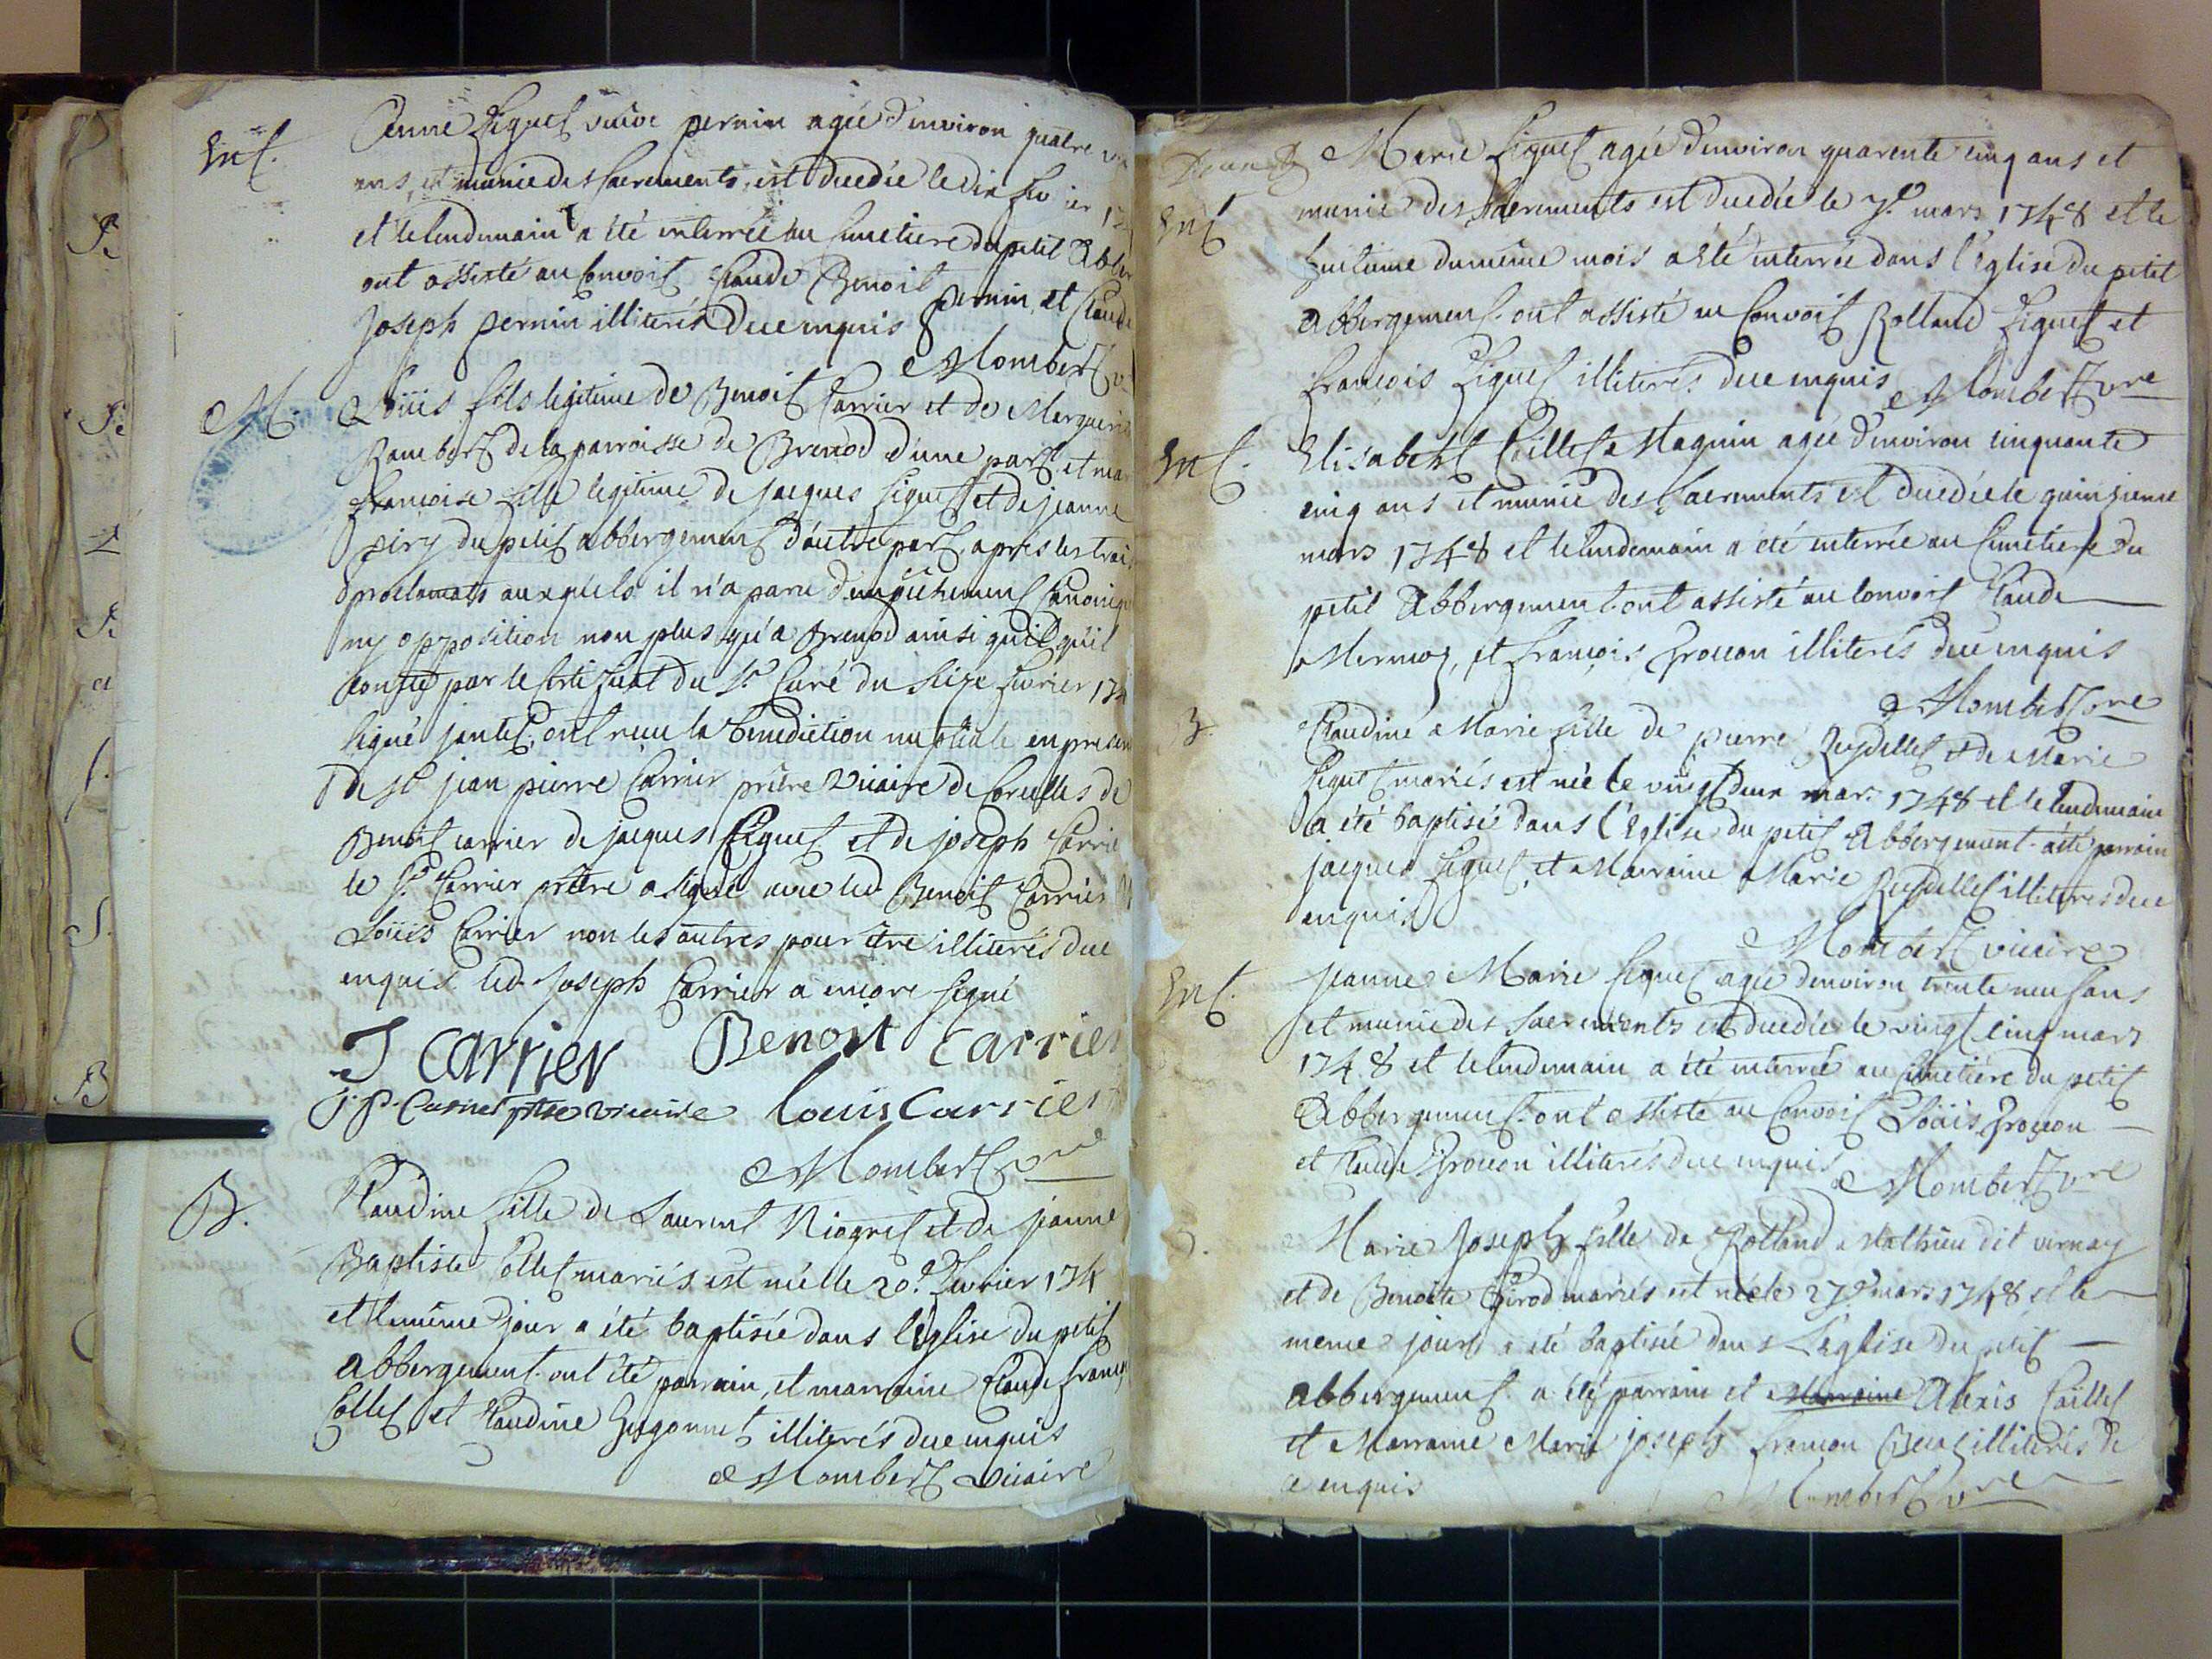 Ent.
Anne Liguet veuve pernin agée d'environ quatre
ans, et munie des sacrements, est decedée le dix
et le lendemain a été enterrée au cimetiere du petit Abber
ont assisté au Convoit Claude Benoit pernin, et Claude
Joseph pernin illiterés de ce enquis
Mombert v
M.
Loüis fils legitime de Benoit Carrier et de Marguerit
Rambert de la parroisse de Brenod d'une part. et mar
françoise fille legitime de jacques Liguet et de jeanne
piry du petit abbergement d'autre part, apres les trois
proclamats auxquels il n'a paru d'empêchement Canonique
ny opposition non plus qu'a Brenod ainsi qu'il qu'il
conste par le Certificat du Sr. Curé du Seize fevrier 174
signé jantet, ont reçu la benediction nuptiale en presen
de Sr jean pierre Carrier prêtre vicaire de Corcelles de
Benoit carrier de jacques Liguet et de joseph Carrie
le Sr. Carrier prêtre a signé avec led. Benoit Carrier
Loüis Carrier non les autres pour être illiterés de ce
enquis led. Joseph Carrier a encore signé
J carrier Benoit Carrier
J. P. Carrier ptre vicaire Louis Carrier
Mombert vre
B.
Claudine fille de Laurent Niogret et de jeanne
Baptiste Collet mariés est née le 20e. fevrier 174
et le même jour a été baptisée dans l'Eglise du petit
abbergement. ont été parrain, et marraine Claude franç
Collet et Claudine Gesgonnet illiterés de ce enquis
Mombert Vicaire
Ent
Marie Liguet agée d'environ quarente cinq ans et
munie des Sacrements est decedée le 7e. mars 1748 et le
huitieme du même mois a été enterrée dans l'église du petit
abbergement. ont assisté au Convoit Rolland Liguet et
françois Liguet illiterés de ce enquis Mombert vre
Ent.
Elisabeth Caillet Magnin agée d'environ cinquante
cinq ans et munie des Sacrements est decedée le quinzieme
mars 1748 et le lendemain a été enterrée au Cimetiere du
petit Abbergement. ont assisté au convoit Claude
Mermoz, et françois Groscon illiterés de ce enquis
Mombert vre
B.
Claudine Marie fille de pierre Reydellet et de Marie
Liguet mariés est née le vingt deux mars 1748 et le lendemain
a été baptisée dans l'église du petit Abbergement. a été parrain
jacques Liguet, et Marraine Marie Reydellet illiterés de ce
enquis
Mombert vicaire
Ent.
Jeanne Marie Liguet agée d'environ trente neuf ans
et munie des Sacrements est decedée le vingt cinq mars
1748 et le lendemain a été enterrée au Cimetiére du petit
Abbergement. ont assisté au Convoit Loüis Groscon
et Claude Groscon illiterés de ce enquis Mombert vre
Marie Joseph fille de Rolland Mathieu dit vernay
et de Benoite Girod mariés est née le 27e mars 1748 et le
meme jour a été baptisée dans L'église du petit
abbergement. a été parrain et Marraine Alexis Caillet
et Marraine Marie joseph françon illiterés de
ce enquis
Mombert vre